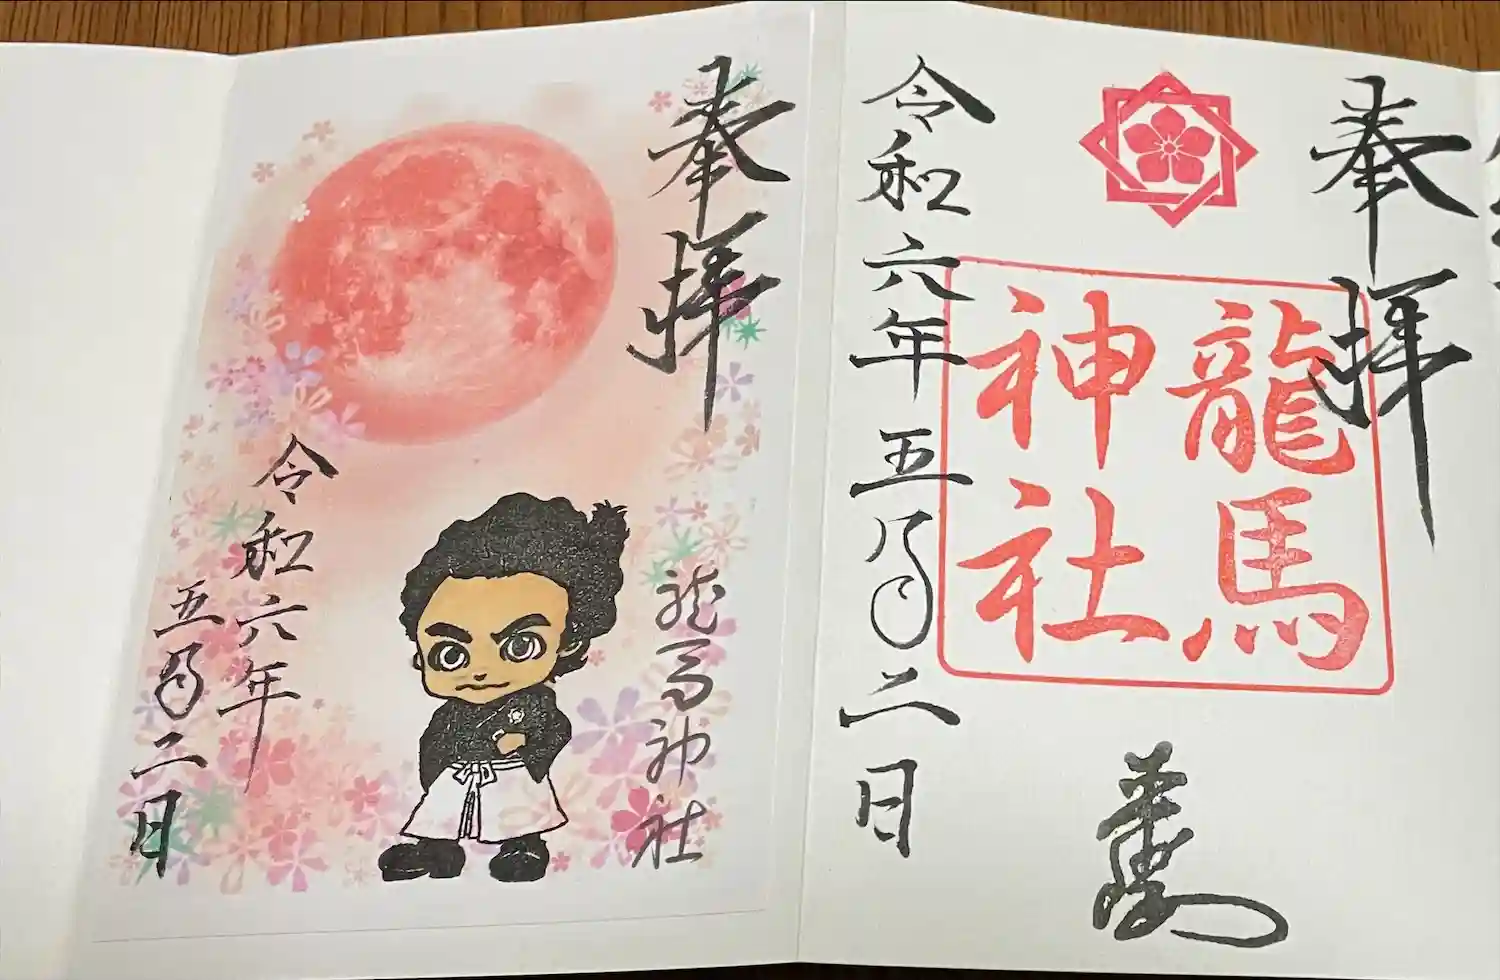 奉拝
龍馬神社
令和六年五月二日
奉拝
龍馬神社
令和六年
五月二日